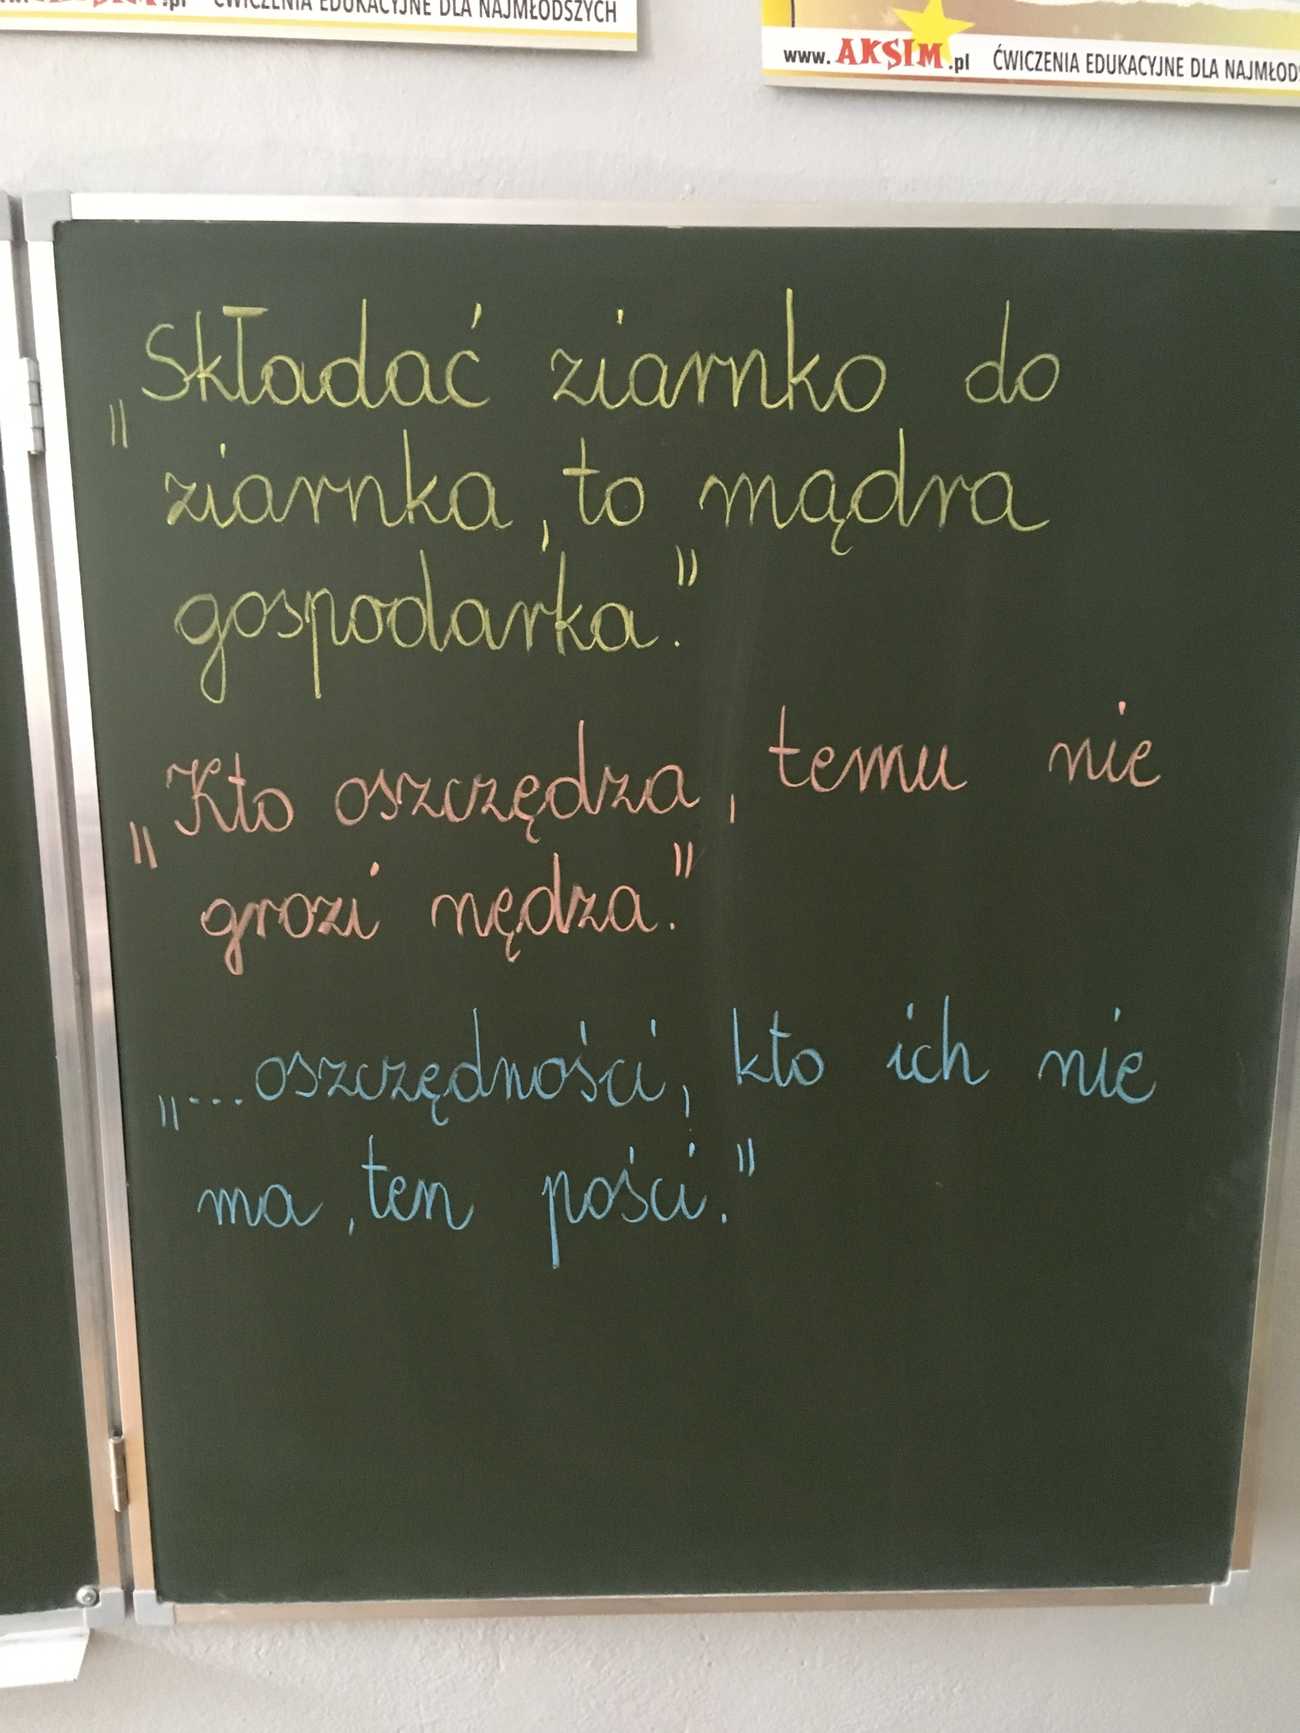 .pl ĆWICZENIA EDUKACYJNE DLA NAJMŁODSZYCH
www.AKSIM.pl ĆWICZENIA EDUKACYJNE DLA NAJMŁODS
„Składać ziarnko do
ziarnka, to mądra
gospodarka."
„Kto oszczędza, temu nie
grozi nędza."
„...oszczędności, kto ich nie
ma, ten pości."